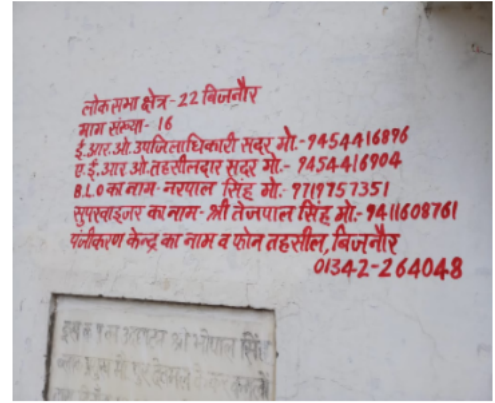 लोकसभा क्षेत्र- 22 बिजनौर
भाग संख्या- 16
ई.आर.ओ. उपजिलाधिकारी सदर मो.- 9454416896
ए.ई.आर ओ.तहसीलदार सदर मो.- 9454416904
B.L.O का नाम- नरपाल सिंह मो.- 9719757351
सुपरवाइजर का नाम- श्री तेजपाल सिंह मो.- 9411608761
पंजीकरण केन्द्र का नाम व फोन तहसील, बिजनौर
01342-264048
श्री भोपाल सिंह